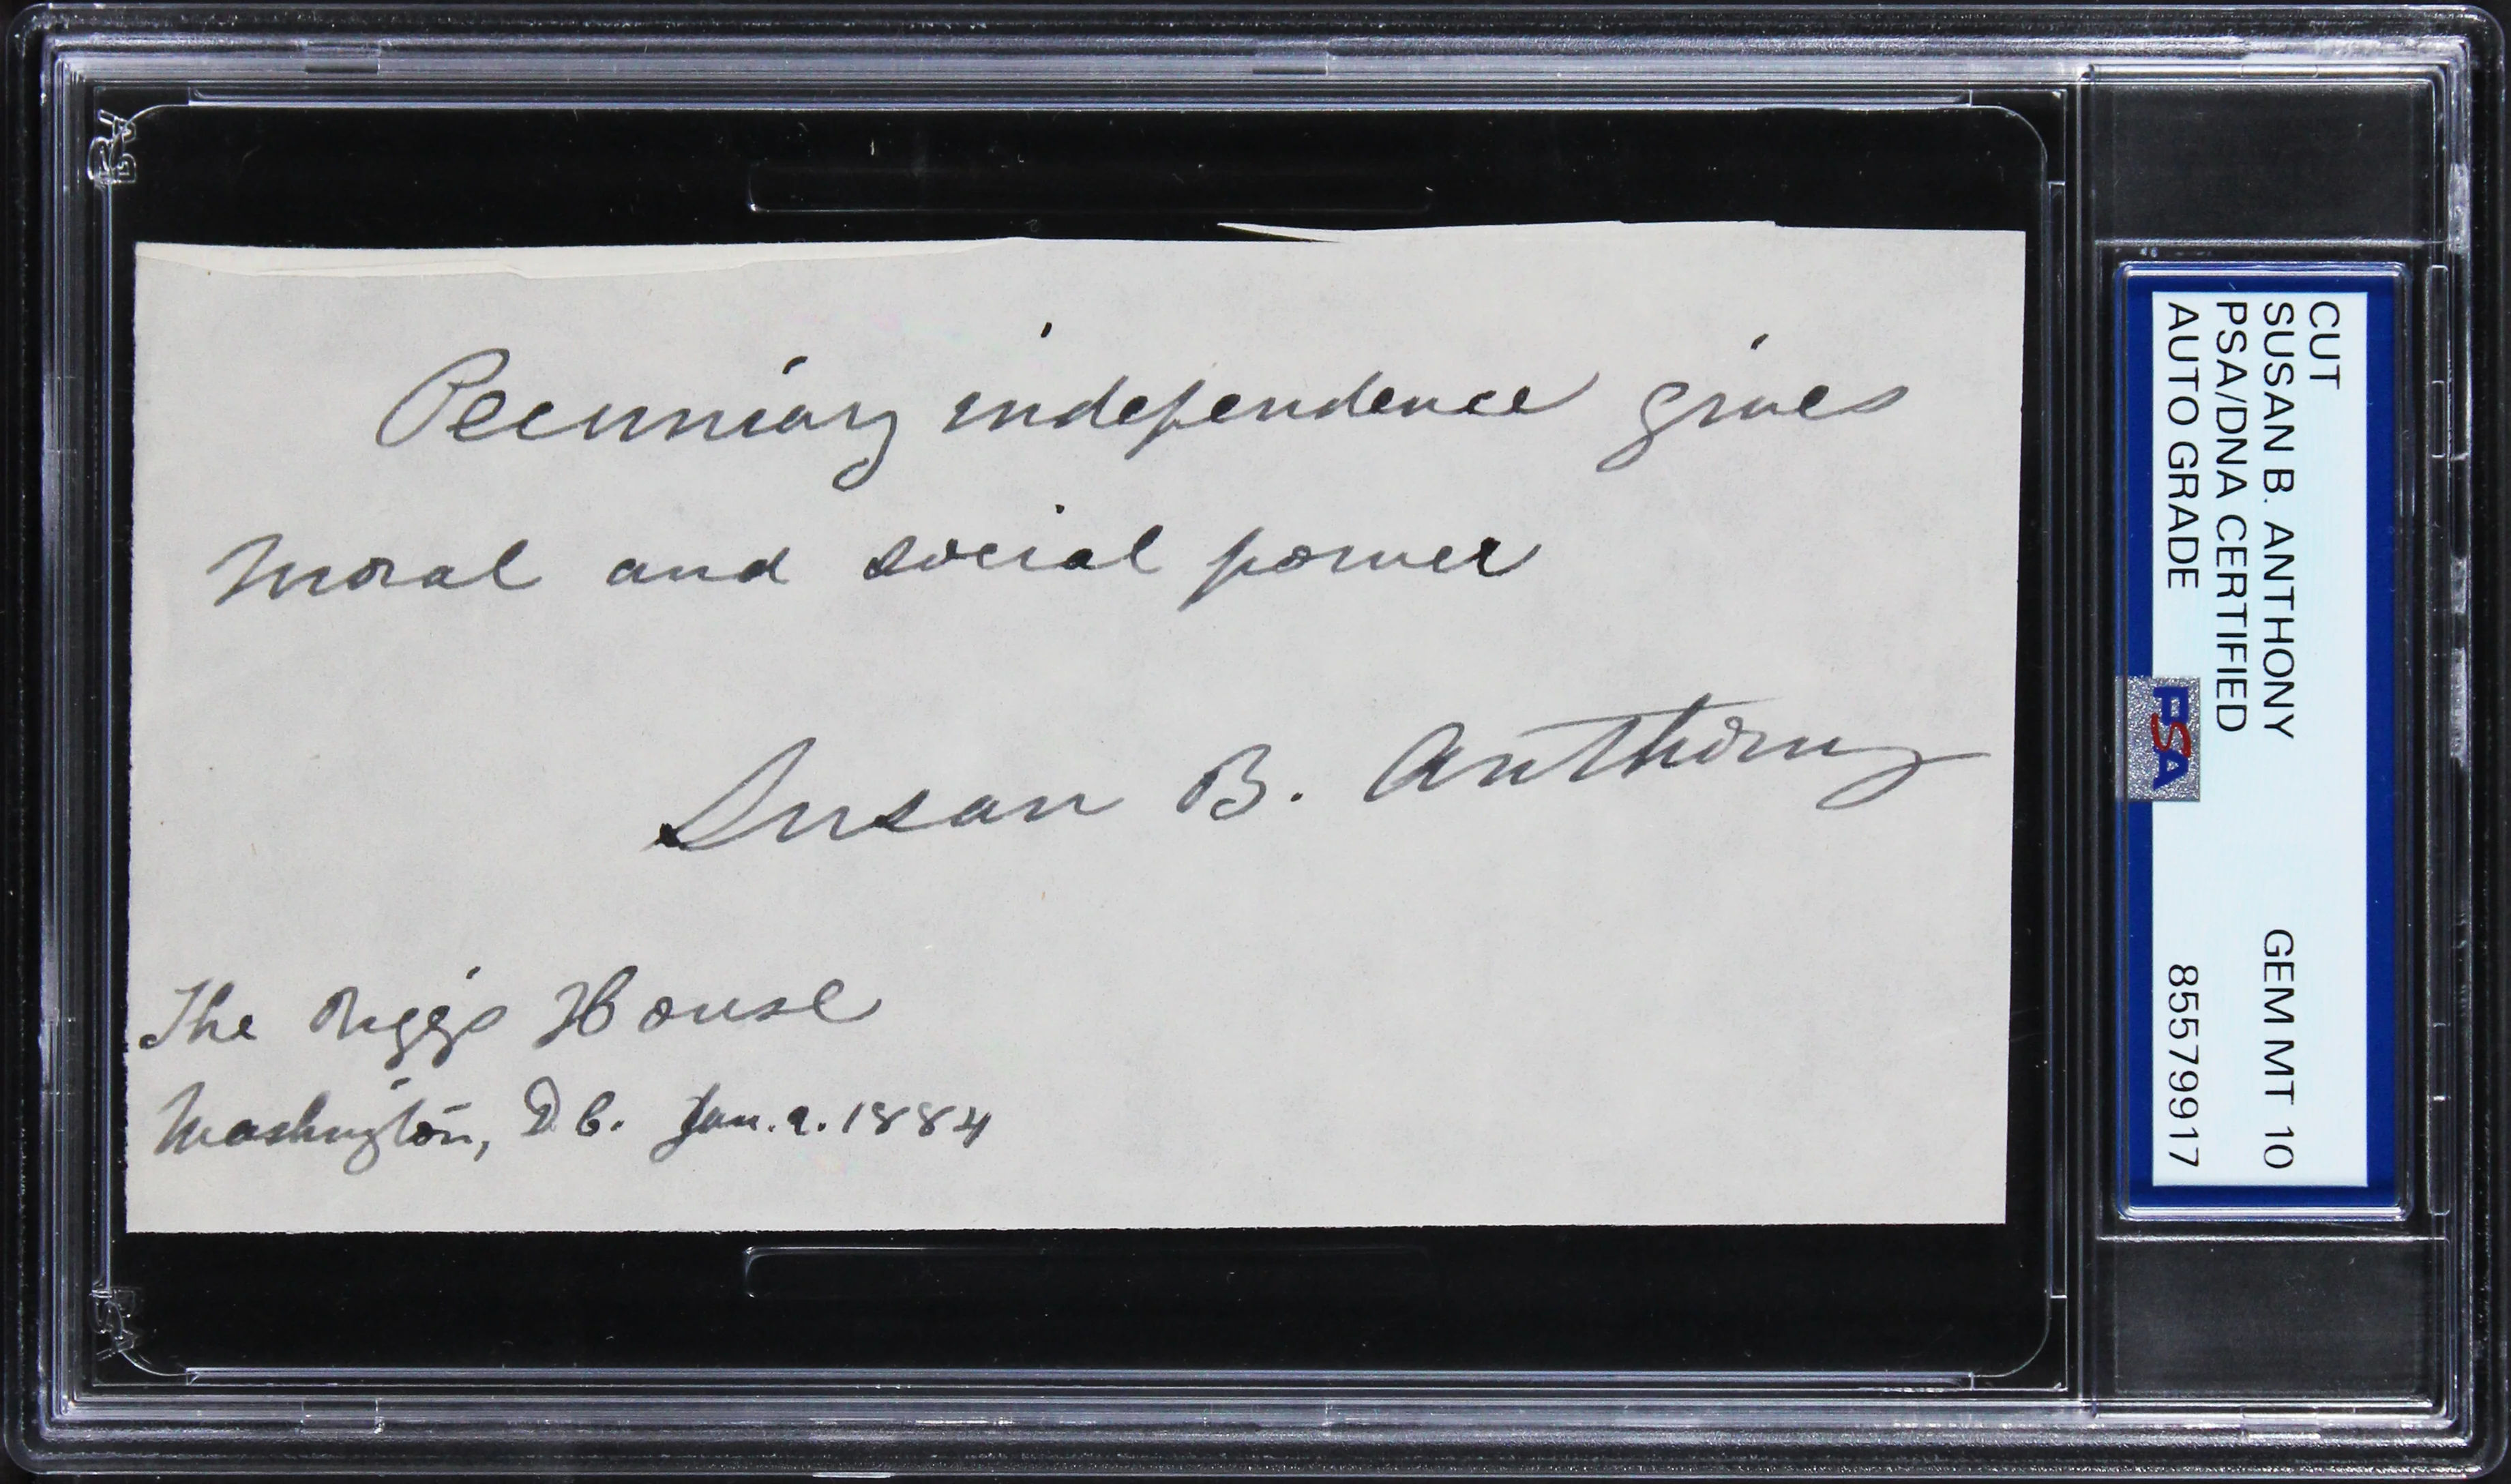 Pecuniary independence gives
moral and social power
Susan B. Anthony
The Riggs House
Washington, D C. Jan. 9. 1884
CUT
SUSAN B. ANTHONY GEM MT 10
PSA/DNA CERTIFIED
AUTO GRADE 85579917
PSA